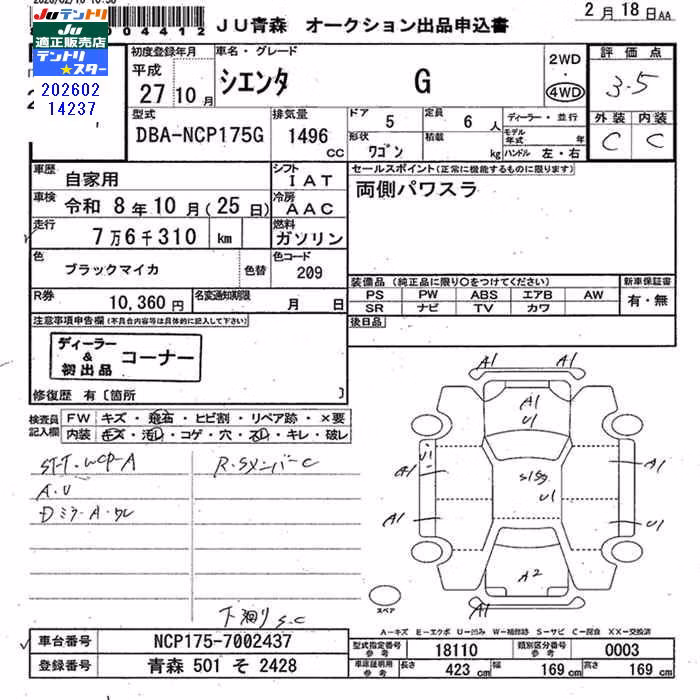 JU青森 オークション出品申込書
2月18日AA
Juテントリ
JU
適正販売店
テントリ
★スター
202602
14237
初度登録年月
平成
27 10月
車名・グレード
シエンタ G
2WD
・
4WD
評価点
3.5
型式
DBA-NCP175G
排気量
1496
cc
ドア 5
定員 6人
形状 ワゴン
積載 kg
ディーラー・並行
モデル年式 年
ハンドル 左・右
外装 内装
C C
車歴
自家用
シフト
IAT
車検
令和 8年10月(25日)
冷房
AAC
走行
7万6千310 km
燃料
ガソリン
色
ブラックマイカ
色替
色コード
209
R券
10,360円
名変通知期限
月 日
セールスポイント(正常に機能するものに限ります)
両側パワスラ
装備品(純正品に限り〇をつけてください)
PS PW ABS エアB AW
SR ナビ TV カワ
新車保証書
有・無
後日品
注意事項申告欄(不具合内容等は具体的に記入して下さい)
ディーラー
&
初出品
コーナー
修復歴 有〔箇所 〕
検査員
記入欄
FW キズ・飛石・ヒビ割・リペア跡・×要
内装 キズ・汚レ・コゲ・穴・スレ・キレ・破レ
ST-T.WCP-A
A.U
Dミラ-A.ワレ
R.Sメンバ-C
下廻り S.C
A1 A1
A1
U1
U1
A1
A1
S1S9
U1
A1
U1
A2
A1
スペア
A-キズ E-エクボ U-凹み W-補修跡 S-サビ C-腐蝕 XX-交換済
車台番号
NCP175-7002437
登録番号
青森 501 そ 2428
型式指定番号
参考
18110
類別区分番号
参考
0003
車庫証明用
参考
長さ 423 cm
幅 169 cm
高さ 169 cm